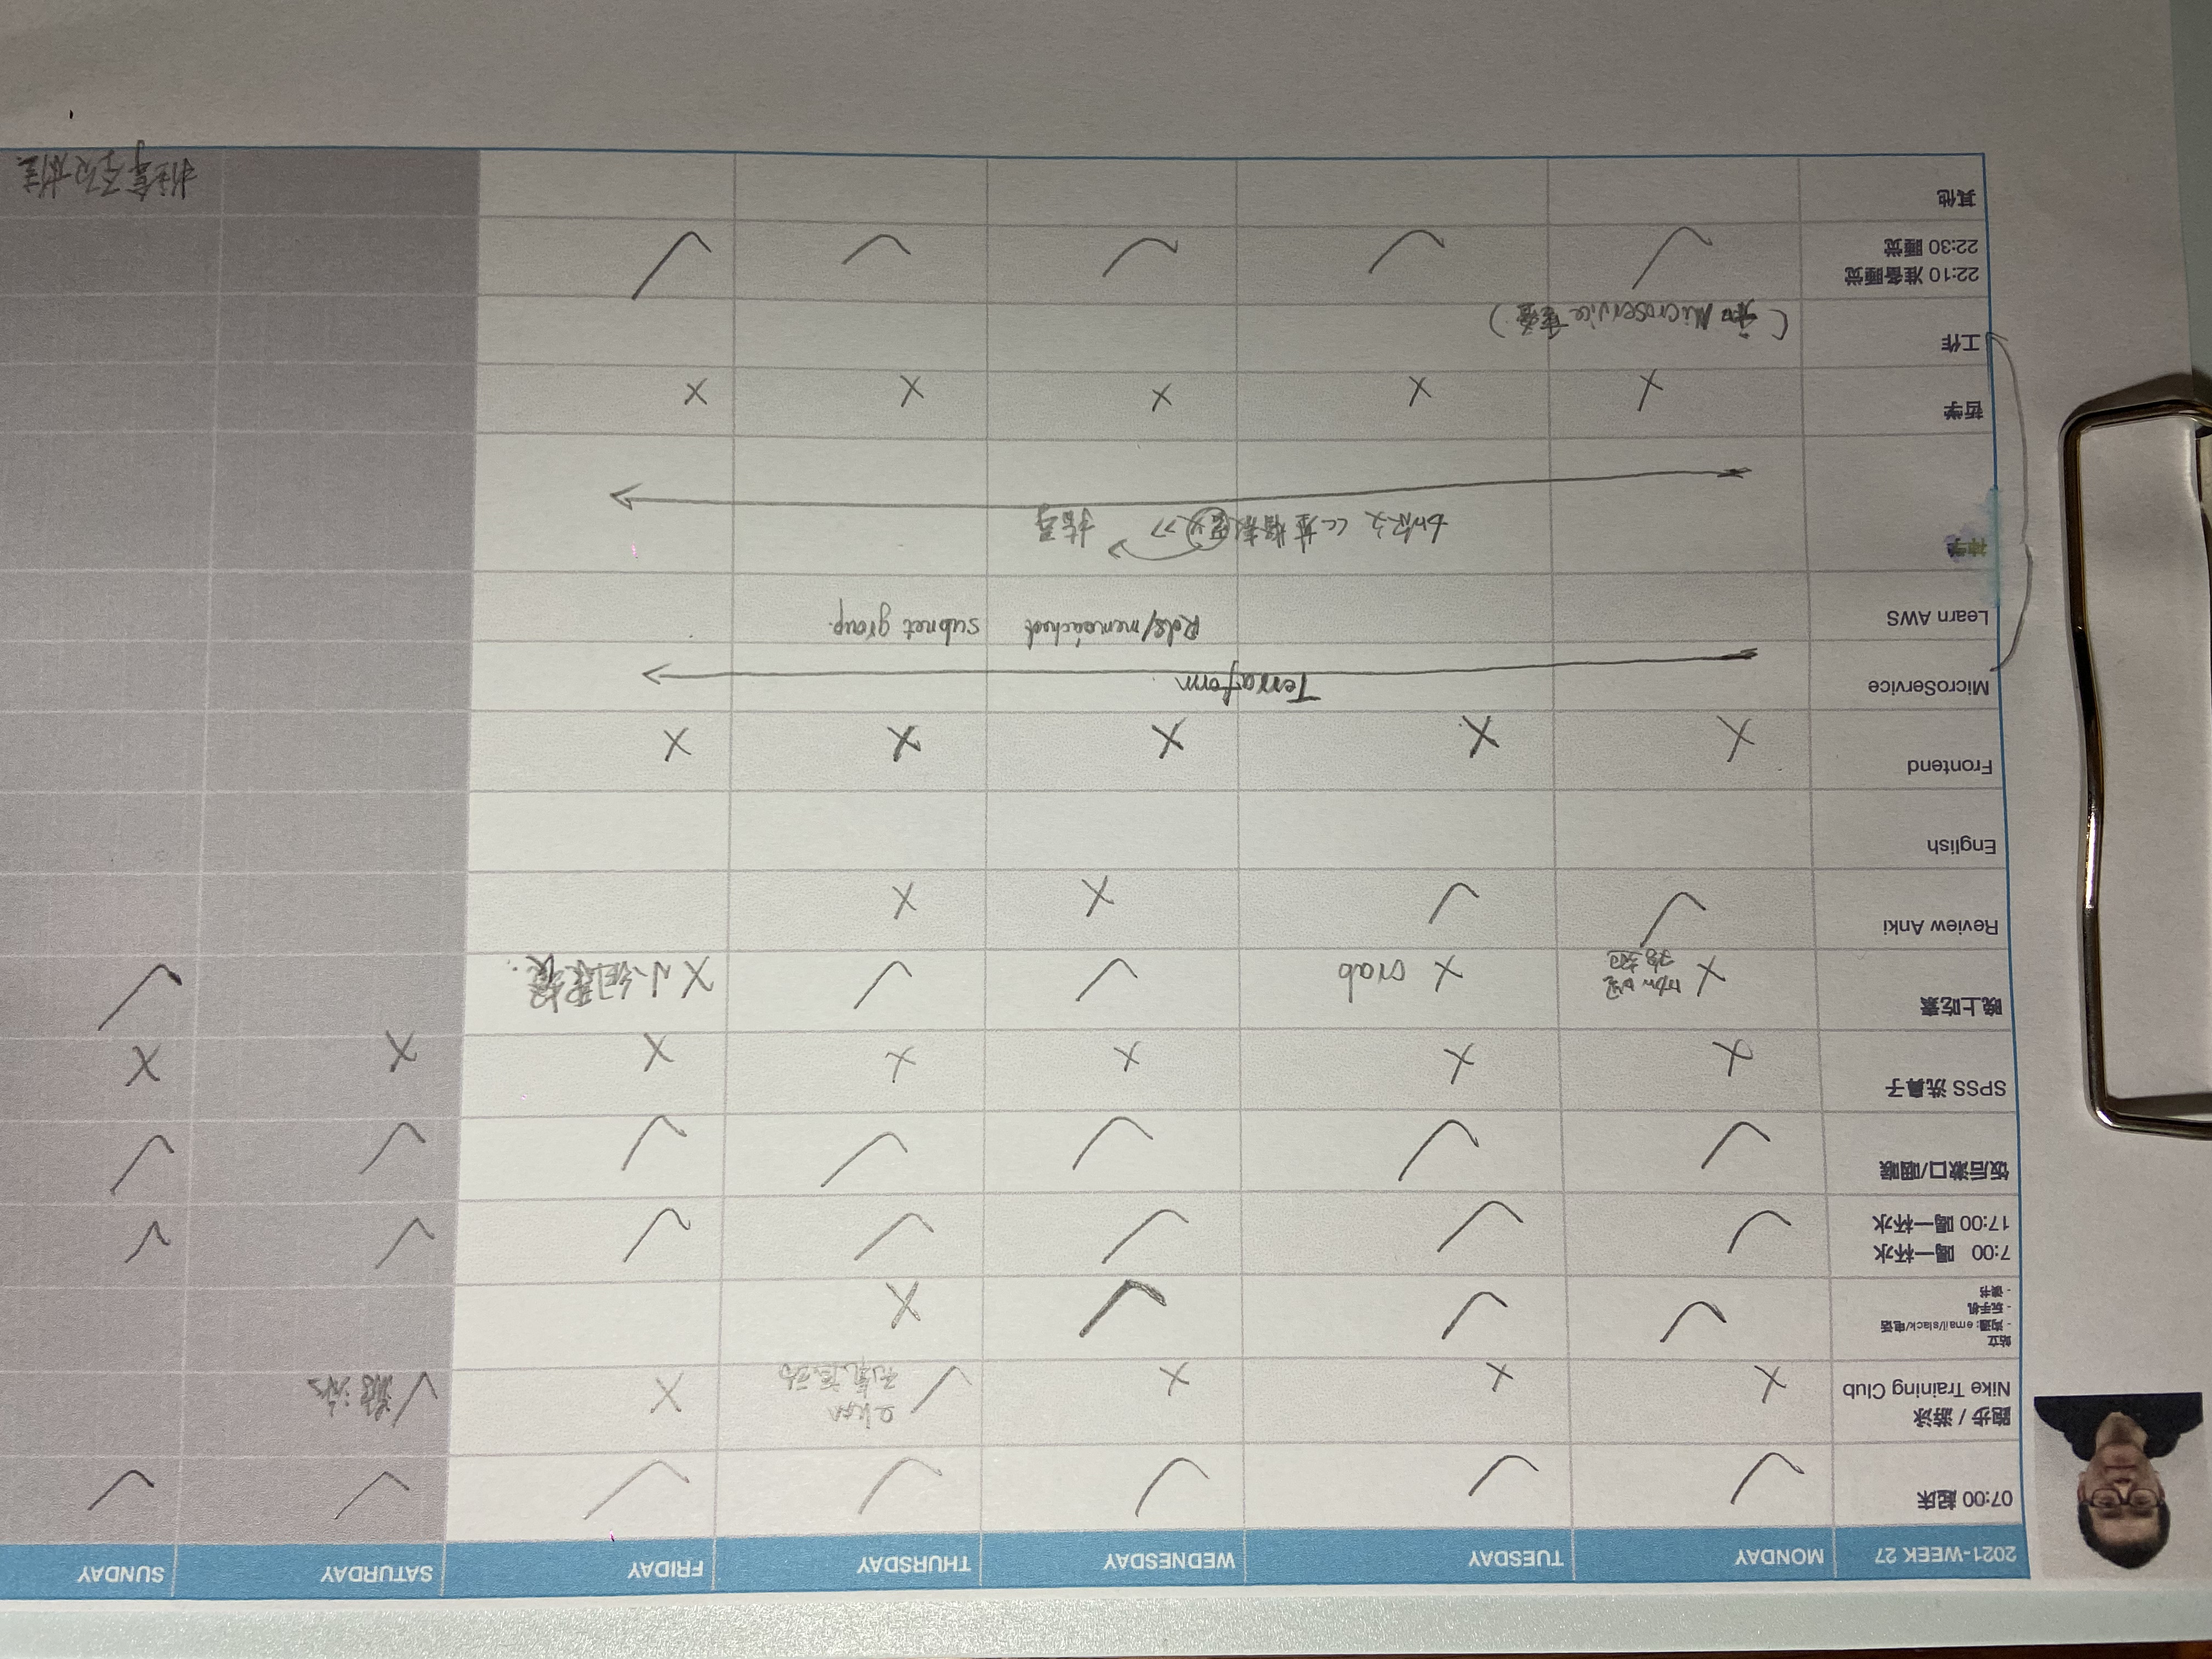 2021-WEEK 27 MONDAY TUESDAY WEDNESDAY THURSDAY FRIDAY SATURDAY SUNDAY
07:00 起床
跑步 / 游泳
Nike Training Club
2km
无氧运动
游泳
站立
- 沟通: email/slack/电话
- 玩手机
- 读书
7:00 喝一杯水
17:00 喝一杯水
饭后漱口/咽喉
SPSS 洗鼻子
晚上吃素
咖喱
鸡翅
crab
小组聚餐.
Review Anki
English
Frontend
MicroService
Terraform
Learn AWS
Rds/memcached subnet group.
神学
加尔文《基督教要义》 指导
哲学
工作
(和Microservice重叠)
22:10 准备睡觉
22:30 睡觉
其他
推拿颈椎